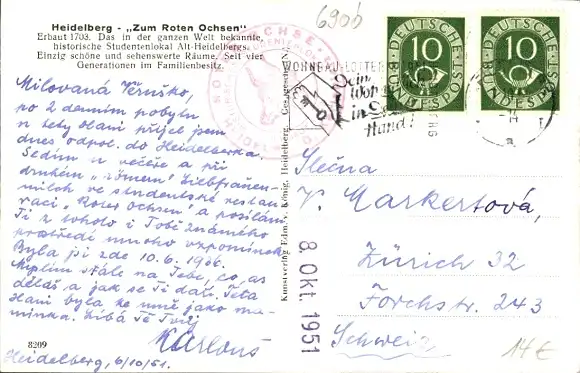 Heidelberg - „Zum Roten Ochsen“
Erbaut 1703. Das in der ganzen Welt bekannte,
historische Studentenlokal Alt-Heidelbergs.
Einzig schöne und sehenswerte Räume. Seit vier
Generationen im Familienbesitz.
Milovaná Věruško,
po 2 denním pobytu
u tety Hani přijel jsem
dnes odpol. do Heidelberka.
Sedím u večeře a při
druhém „römern“ Liebfrauen-
milch ve studentské restau-
raci „Roter Ochsen“ a posílám
Ti z tohoto i Tobě známého
prostředí mnoho vzpomínek
Byla jsi zde 10.6.1906.
Myslím stále na Tebe, co as
děláš a jak se Ti daří. Teta
Hani byla ke mně jako ma-
minka. Líbá Tě Tvůj
Karlouš
8209
Heidelberg, 6/10/51.
Kunstverlag Edm. v. König, Heidelberg. Gesetz. gesch. Nr.
6900
WOHNBAU-LOTTERIE
Dein
in
Hand!
DEUTSCHE BUNDESPOST
10
DEUTSCHE BUNDESPOST
10
8. Okt. 1951
Slečna
V. Markertová,
Zürich 32
Forchstr. 243
Schweiz
14 €